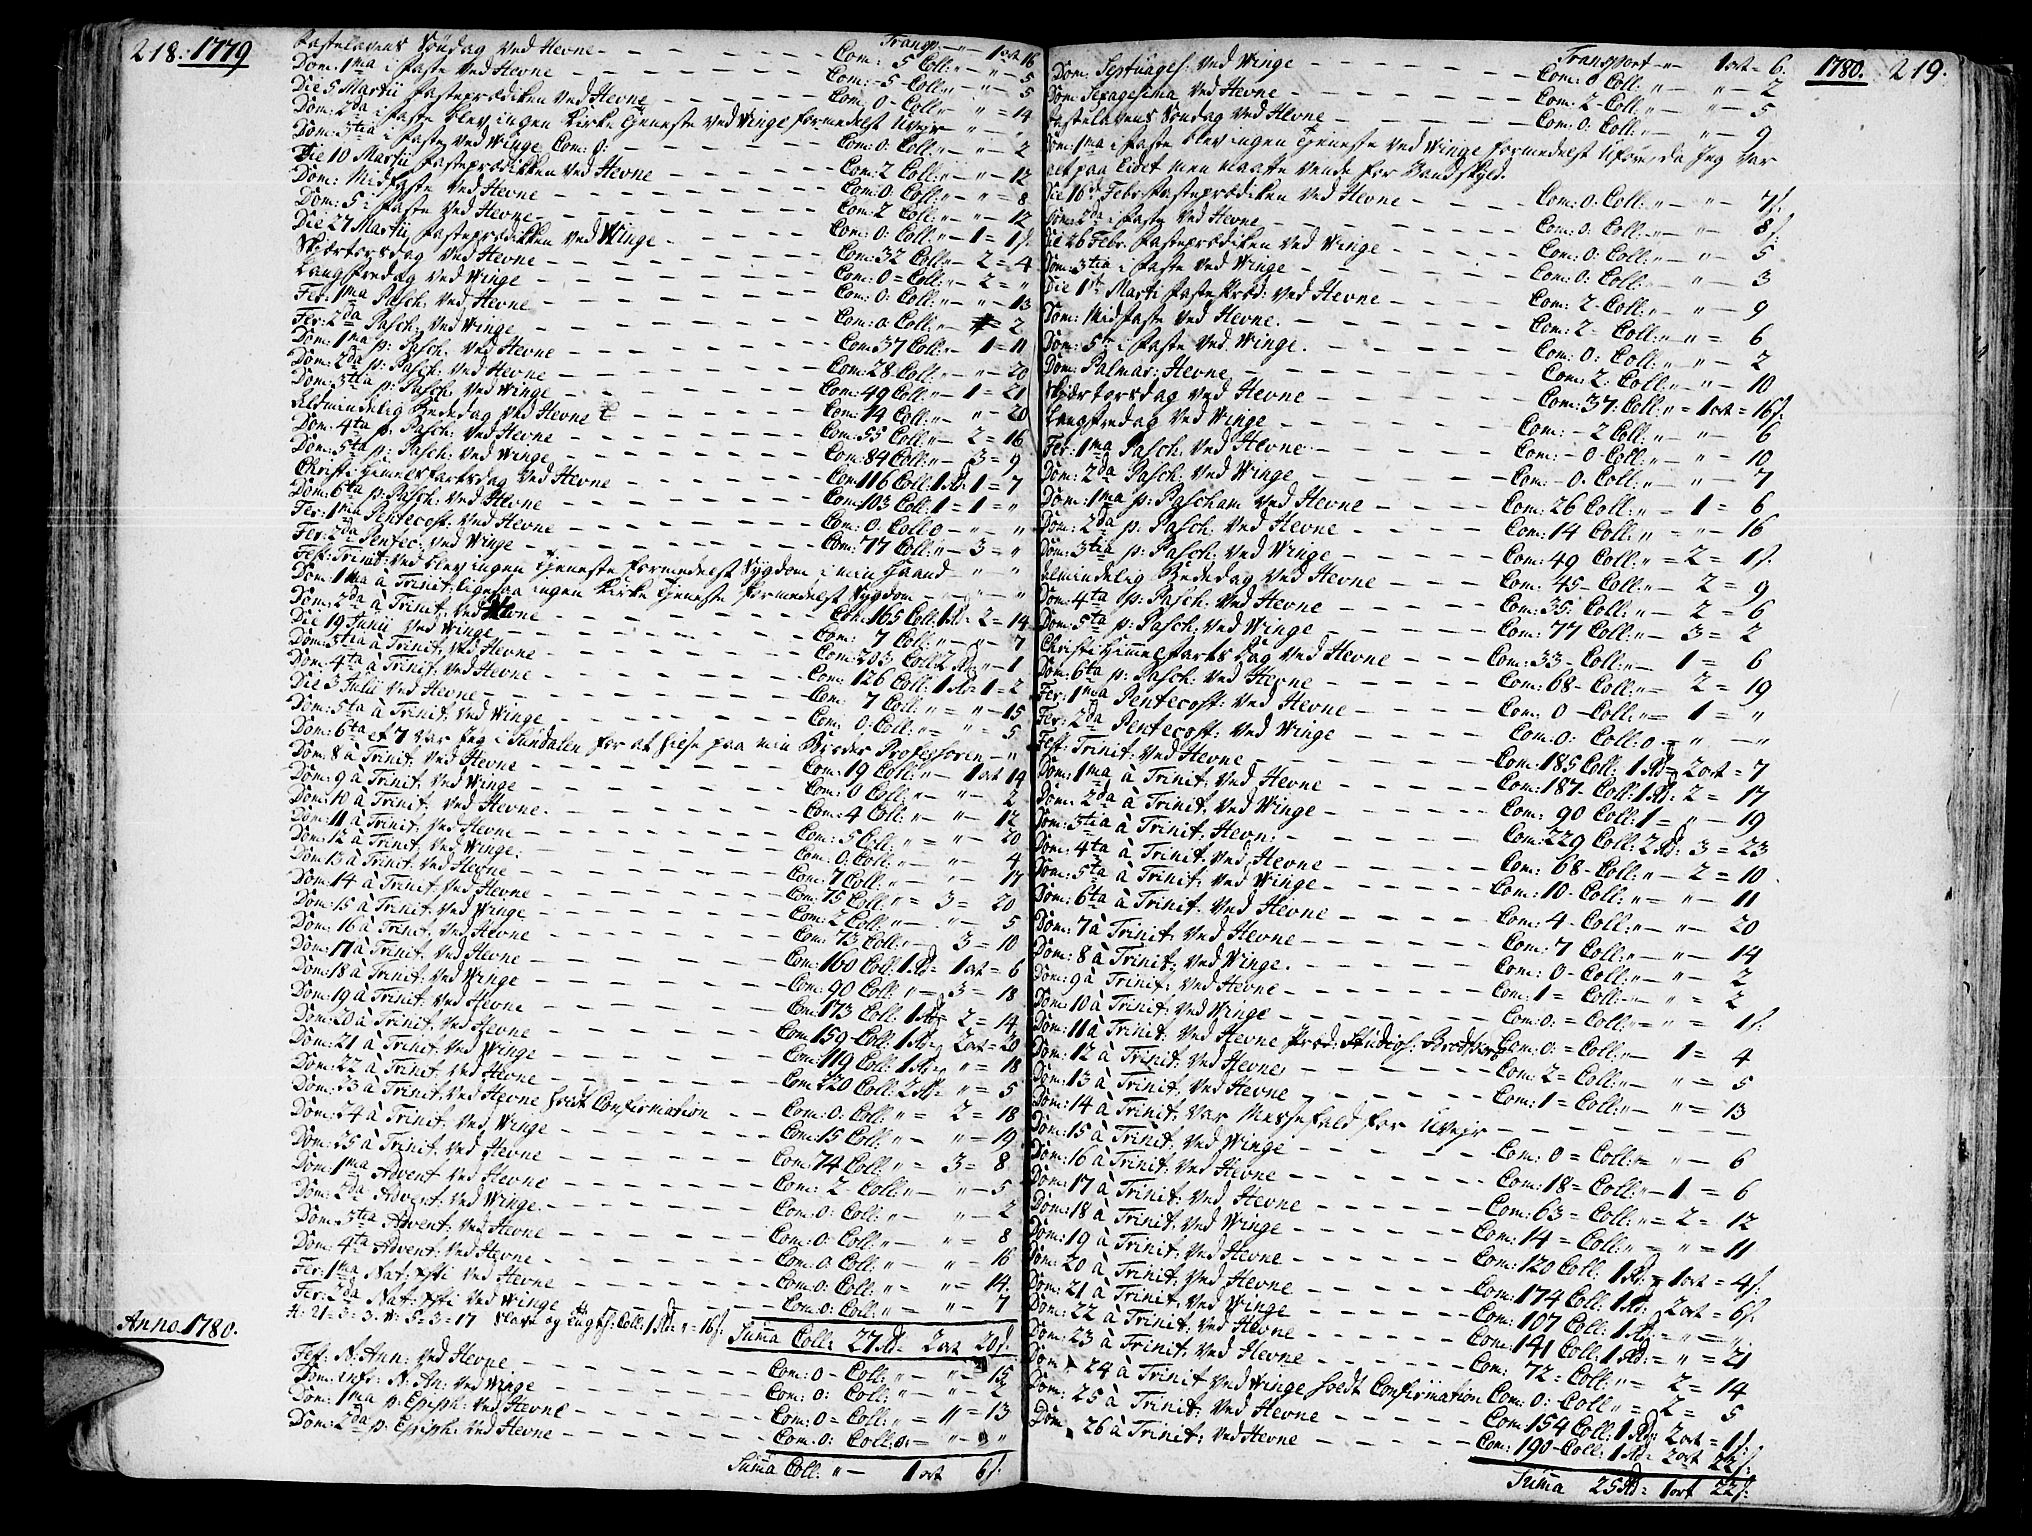 218. 1779
Transp: " — 1 ort 16
Fastelavens Søndag ved Hevne — Com: 5 Coll: " — " — 5
Dom: 1ma i Faste ved Hevne — Com: 5 Coll: " — " — 5
Die 5 Martii Fasteprædiken ved Hevne — Com: 0 Coll: " — " = 14
Dom: 2da i Faste blev ingen Kirke Tjeneste ved Winge formedelst Uvejr — " — "
Dom: 3tia i Faste ved Winge Com: 0: — Com: 0: Coll: " — " — 2
Die 10 Martii Fasteprædikken ved Hevne — Com: 2 Coll: " — " — 12
Dom: Midfaste ved Hevne — Com: 0: Coll: " — " = 8
Dom: 5 i Faste ved Hevne — Com: 2 Coll: " — " — 12
Die 27 Martii Fasteprædikken ved Winge — Com: 0: Coll: " — 1 = 1 s.
Skiærtorsdag ved Hevne — Com: 32 Coll: " — 2 = 4
Langfredag ved Winge — Com: 0 = Coll: " — 2 = "
Fer: 1ma Pasch: ved Hevne — Com: 0: Coll: " — " — 13
Fer: 2da Pasch: ved Winge — Com: 0 Coll: " — 2
Dom: 1ma p: Pasch: ved Hevne — Com: 37 Coll: " — 1 = 11
Dom: 2da p: Pasch: ved Hevne — Com: 28 Coll: " — " — 20
Dom: 3tia p: Pasch: ved Winge — Com: 49 Coll: " — 1 = 21
Almindelig Bededag ved Hevne — Com: 14 Coll: " — " = 20
Dom: 4ta p: Pasch: ved Hevne — Com: 55 Coll: " — 2 = 16
Dom: 5ta p: Pasch: ved Winge — Com: 84 Coll: " — 3 = 9
Christi Himmelfartsdag ved Hevne — Com: 116 Coll: 1 Rd: 1 = 7
Dom: 6ta p: Pasch: ved Hevne — Com: 103 Coll: 1 = 1 = "
Fer: 1ma Pentecost: ved Hevne — Com: 0: Coll: 0 — " — "
Fer: 2da Pentec: ved Winge — Com: 77 Coll: " — 3 = "
Fest: Trinit: ved blev ingen Tjeneste formedelst Sygdom i min Haand — " "
Dom: 1ma à Trinit: ligesaa ingen Kirke Tjeneste formedelst Sygdom — " — "
Dom: 2da à Trinit: ved Hevne — Com: 165 Coll: 1 Rd: 2 = 14
Die 19 Junii ved Winge — Com: 7 Coll: " — " — 7
Dom: 3tia à Trinit: ved Hevne — Com: 203 Coll: 2 Rd: " — 1
Dom: 4ta à Trinit: ved Hevne — Com: 126 Coll: 1 Rd: 1 = 2
Die 3 Julii ved Hevne — Com: 7 Coll: " = " — 15
Dom: 5ta à Trinit: ved Winge — Com: 0: Coll: " = " — 5
Dom: 6ta et 7 var Jeg i Sundalen for at hilse paa min Broder Professoren — "
Dom: 8 à Trinit: ved Hevne — Com: 19 Coll: " — 1 ort 19
Dom: 9 à Trinit: ved Winge — Com: 0 Coll: " — " — 2
Dom: 10 à Trinit: ved Hevne — Com: 4 Coll: " — " — 12
Dom: 11 à Trinit: ved Hevne — Com: 5 Coll: " = " — 20
Dom: 12 à Trinit: ved Winge: — Com: 0: Coll: " — " — 4
Dom: 13 à Trinit: ved Hevne — Com: 7 Coll: " " — 17
Dom: 14 à Trinit: ved Hevne — Com: 75 Coll: " = 3 = 20
Dom: 15 à Trinit: ved Winge — Com: 2 Coll: " — " — 5
Dom: 16 à Trinit: ved Hevne — Com: 73 Coll: " — 3 = 10
Dom: 17 à Trinit: ved Hevne — Com: 160 Coll: 1 Rd: 1 ort = 6
Dom: 18 à Trinit: ved Winge — Com: 90 Coll: " — 3 = 18
Dom: 19 à Trinit: ved Hevne — Com: 173 Coll: 1 Rd: 2 = 14
Dom: 20 à Trinit: ved Hevne — Com: 159 — Coll: 1 Rd: 2 ort = 20
Dom: 21 à Trinit: ved Winge — Com: 119 Coll: 1 Rd: " = 18
Dom: 22 à Trinit: ved Hevne — Com: 320 Coll: 2 Rd: " = 5
Dom: 23 à Trinit: ved Hevne holdt Confirmation — Com: 0: Coll: " = 2 = 18
Dom: 24 à Trinit: ved Winge — Com: 15 Coll: " = " = 19
Dom: 25 à Trinit: ved Hevne — Com: 74 Coll: " = 3 = 8
Dom: 1ma Advent ved Hevne — Com: 2 — Coll: " — " — 5
Dom: 2da Advent: ved Winge — Com: 0: Coll: " — " — 2
Dom: 3tia Advent: ved Hevne — Com: 0: Coll: " — " = 8
Dom: 4ta Advent: ved Hevne — Com: 0: Coll: " — " = 16
Fer: 1ma Nat: Xsti ved Hevne — Com: 0: Coll: " = " = 14
Fer: 2da Nat: Xsti ved Winge — Com: 0: Coll: " = " = 7
Summa Coll: 27 Rd: 2 ort 20 s.
Anno 1780.
Fest: N: Ann: ved Hevne — Com: 0 — Coll: " — " = 15
Dom: infr: N: An: ved Winge — Com: 0: Coll: " — " — 2
Dom: 1ma p: Epiph: ved Hevne — Com: 0 = Coll: " = " = 13
Dom: 2da p: Epiph: ved Hevne — Com: 0: Coll: 0: = " — "
Summa Coll: " — 1 ort 6 s.
1780. 219.
Transport " — 1 ort = 6.
Dom: Septuages: ved Winge — Com: 0 Coll: " — " — 2
Dom: Sexagesima ved Hevne — Com: 2 — Coll: " — " — 5
Fastelavens Søndag ved Hevne — Com: 0: Coll: " — " — 9
Dom: 1ma i Faste blev ingen Tjeneste ved Winge formedelst Uføre, da Jeg var
alt paa Eidet men maatte vende for
Die 16d Febr: Fasteprædiken ved Hevne — Com: 0: Coll: " — " — 7 s.
Dom: 2da i Faste ved Hevne — Com: 0: Coll: " — " — 8 s.
Die 26 Febr: Fasteprædiken ved Winge — Com: 0: Coll: " — " — 5
Dom: 3tia i Faste ved Winge — Com: 0: Coll: " — " — 3
Die 1ste Marti Faste Præd: ved Hevne — Com: 2 — Coll: " — " — 9
Dom: Midfaste ved Hevne. — Com: 2 — Coll: " " = 6
Dom: 5te i Faste ved Winge. — Com: 0: Coll: " — " — 2
Dom: Palmar: Hevne — Com: 2: Coll: " — " — 10
Skiærtorsdag ved Hevne — Com: 37: Coll: " = 1 ort = 16 s.
Langfredag ved Winge — Com: — 2 Coll: " — " — 6
Fer: 1ma Pasch: ved Hevne — Com: — 0 Coll: " — " — 10
Dom: 2da Pasch: ved Winge — Com: — 0: Coll: " — " — 7
Dom: 1ma p: Pascham ved Hevne — Com: 26 Coll: " = 1 = 6
Dom: 2da p: Pasch: ved Hevne — Com: 14 Coll: " = " — 16
Dom: 3tia p: Pasch: ved Winge — Com: 49 Coll: " = 2 = 1 s.
Almindelig Bededag ved Hevne — Com: 45 — Coll: " — 2 = 9
Dom: 4ta p: Pasch: ved Hevne — Com: 35: Coll: " — 2 = 6
Dom: 5ta p: Pasch: ved Winge — Com: 77 Coll: " — 3 = 2
Christi Himmelfarts Dag ved Hevne — Com: 33 — Coll: " — 1 = 6
Dom: 6ta p: Pasch: ved Hevne — Com: 68 — Coll: " = 2 = 19
Fer: 1ma Pentecost: ved Hevne — Com: 0 — Coll: " = 1 = "
Fer: 2da Pentecost: ved Winge — Com: 0: Coll: 0 = " — "
Fest: Trinit: ved Hevne — Com: 185 Coll: 1 Rd: 2 ort = 7
Dom: 1ma à Trinit: ved Hevne — Com: 187 — Coll: 1 Rd: 2 = 17
Dom: 2da à Trinit: ved Winge — Com: 90 Coll: 1 = " — 19
Dom: 3tia à Trinit: Hevn: — Com: 229 Coll: 2 Rd: 3 = 23
Dom: 4ta à Trinit: ved Hevne — Com: 68 — Coll: " — 2 = 10
Dom: 5ta à Trinit: ved Winge — Com: 10 — Coll: " = " — 11
Dom: 6ta à Trinit: ved Hevne — Com: 4 — Coll: " — " — 20
Dom: 7 à Trinit: ved Hevne — Com: 7 Coll: " — " — 14
Dom: 8 à Trinit: ved Winge. — Com: 0 — Coll: " — " — 2
Dom: 9 à Trinit: ved Hevne — Com: 1 = Coll: " — " = 2
Dom: 10 à Trinit: ved Winge — Com: 0: = Coll: " = " = 1 s.
Dom: 11 à Trinit: ved Hevne Præd: Studios: — Com: 0: = Coll: " — 1 = 4
Dom: 12 à Trinit: ved Hevne — Com: 2 = Coll: " — " = 5
Dom: 13 à Trinit: ved Hevne — Com: 1 = Coll: " — " = 13
Dom: 14 à Trinit: var Messefald for Uvejr —
Dom: 15 à Trinit: ved Winge — Com: 0 = Coll: " = " — 6
Dom: 16 à Trinit: ved Hevne — Com: 18 = Coll: " — 1 = 6
Dom: 17 à Trinit: ved Hevne — Com: 63 = Coll: " = 2 = 12
Dom: 18 à Trinit: ved Winge — Com: 14 = Coll: " = " = 11
Dom: 19 à Trinit: ved Hevne — Com: 120 Coll: 1 Rd: 1 ort = 4 s.
Dom: 20 à Trinit: ved Hevne — Com: 174 Coll: 1 Rd: 2 ort = 6 s.
Dom: 21 à Trinit: ved Winge — Com: 107 Coll: 1 Rd: = " = "
Dom: 22 à Trinit: ved Hevne — Com: 141 Coll: 1 Rd: = " = 21
Dom: 23 à Trinit: ved Hevne — Com: 72 = Coll: " = 2 = 14
Dom: 24 à Trinit: ved Winge holdt Confirmation Com: 0: Coll: " = 2 = 5
Dom: 25 à Trinit: ved Hevne — Com: 154 Coll: 1 Rd: 2 ort = 1 s.
Dom: 26 à Trinit: ved Hevne — Com: 190 — Coll: 1 Rd: 2 ort 22 s.
Summa 25 Rd: 1 ort 22 s.